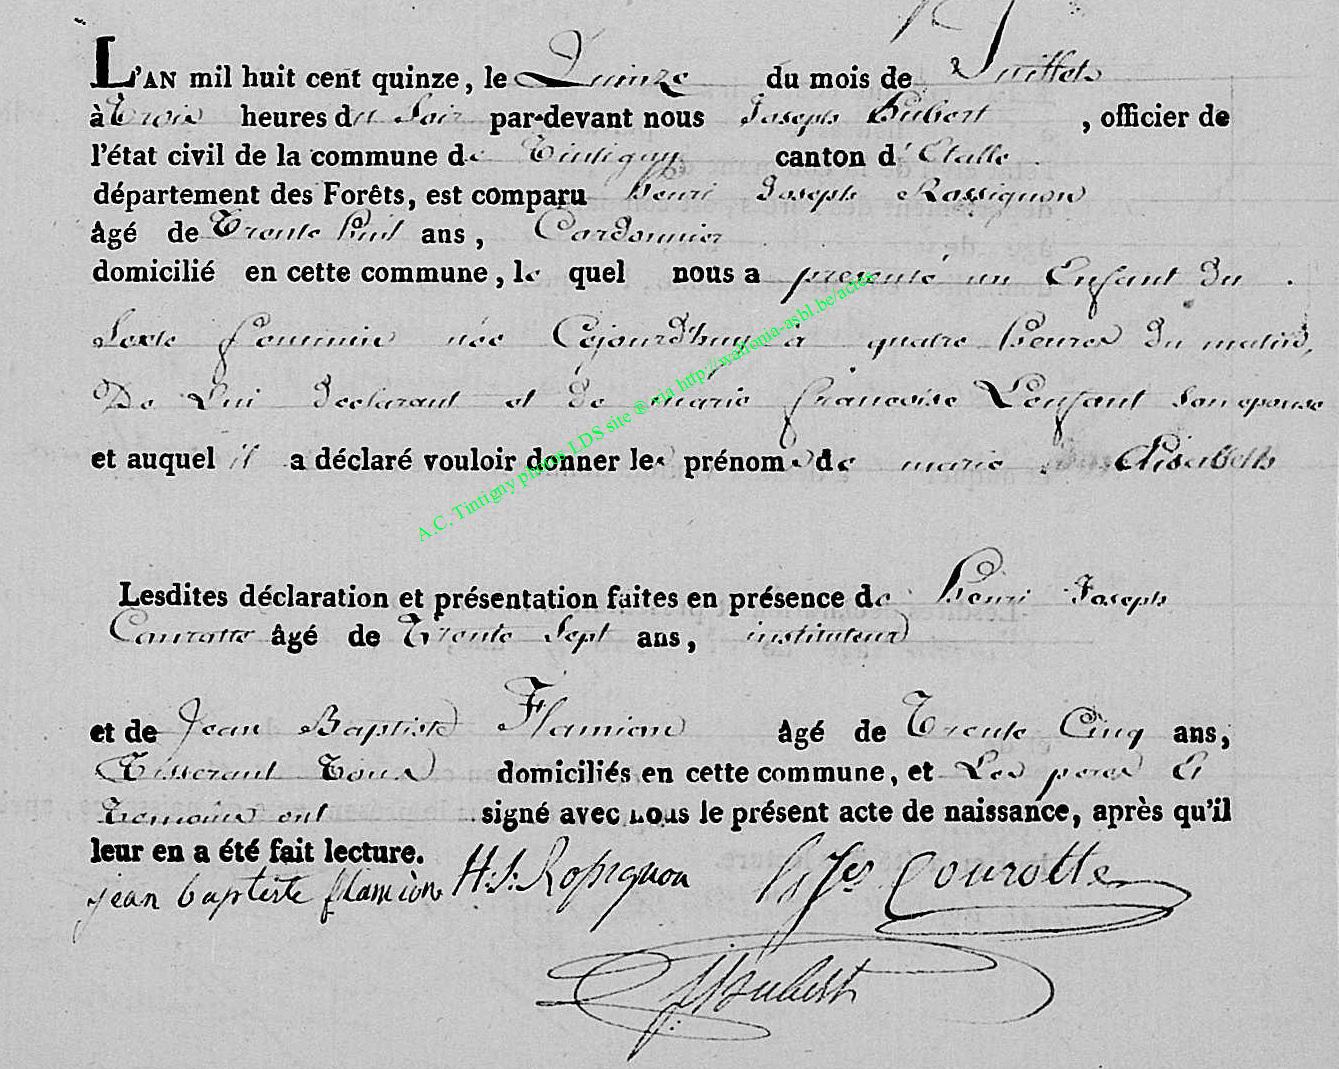 L'AN mil huit cent quinze, le Quinze du mois de Juillet
à Trois heures du Soir par-devant nous Joseph Hubert, officier de
l'état civil de la commune de Tintigny canton d'Etalle
département des Forêts, est comparu henri Joseph Rossignon
âgé de Trente huit ans, Cordonnier
domicilié en cette commune, le quel nous a presenté un Enfant du
Sexe feminin née Cejourd'huy à quatre heures du matin,
De Lui declarant et de marie francoise Lenfant son epouse
et auquel il a déclaré vouloir donner les prénoms de marie Elisabeth
A.C. Tintigny photo LDS site ® via http://wallonia-asbl.be/actes
Lesdites déclaration et présentation faites en présence de henri Joseph
Courotte âgé de Trente Sept ans, instituteur
et de Jean Baptiste Flamion âgé de Trente Cinq ans,
Tisserant Tous domiciliés en cette commune, et Les peres Et
Temoins ont signé avec nous le présent acte de naissance, après qu'il
leur en a été fait lecture.
jean baptiste flamion H:J: Rossignon h Jes Courotte
J Hubert